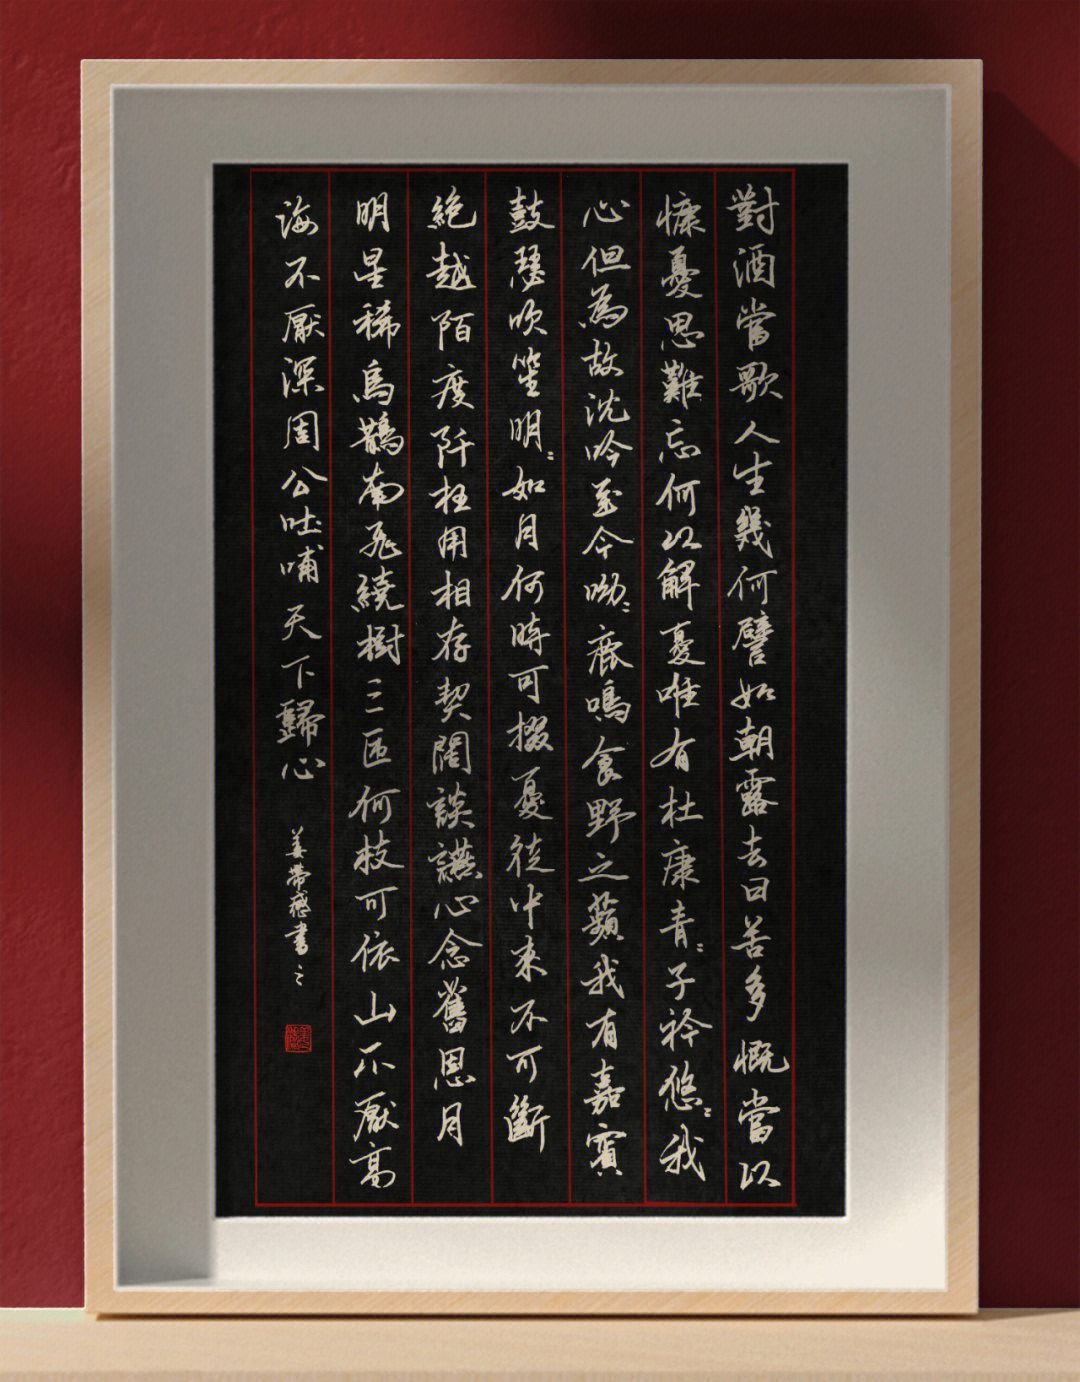 對酒當歌人生幾何譬如朝露去日苦多慨當以
慷憂思難忘何以解憂唯有杜康青〻子衿悠〻我
心但為故沈吟至今呦〻鹿鳴食野之蘋我有嘉賓
鼓瑟吹笙明〻如月何時可掇憂從中來不可斷
絕越陌度阡枉用相存契闊談讌心念舊恩月
明星稀烏鵲南飛繞樹三匝何枝可依山不厭高
海不厭深周公吐哺天下歸心
姜帶書之